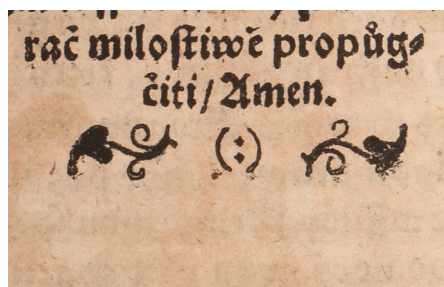 rač miloſtiwě propůg⸗
čiti / Amen.
(:)